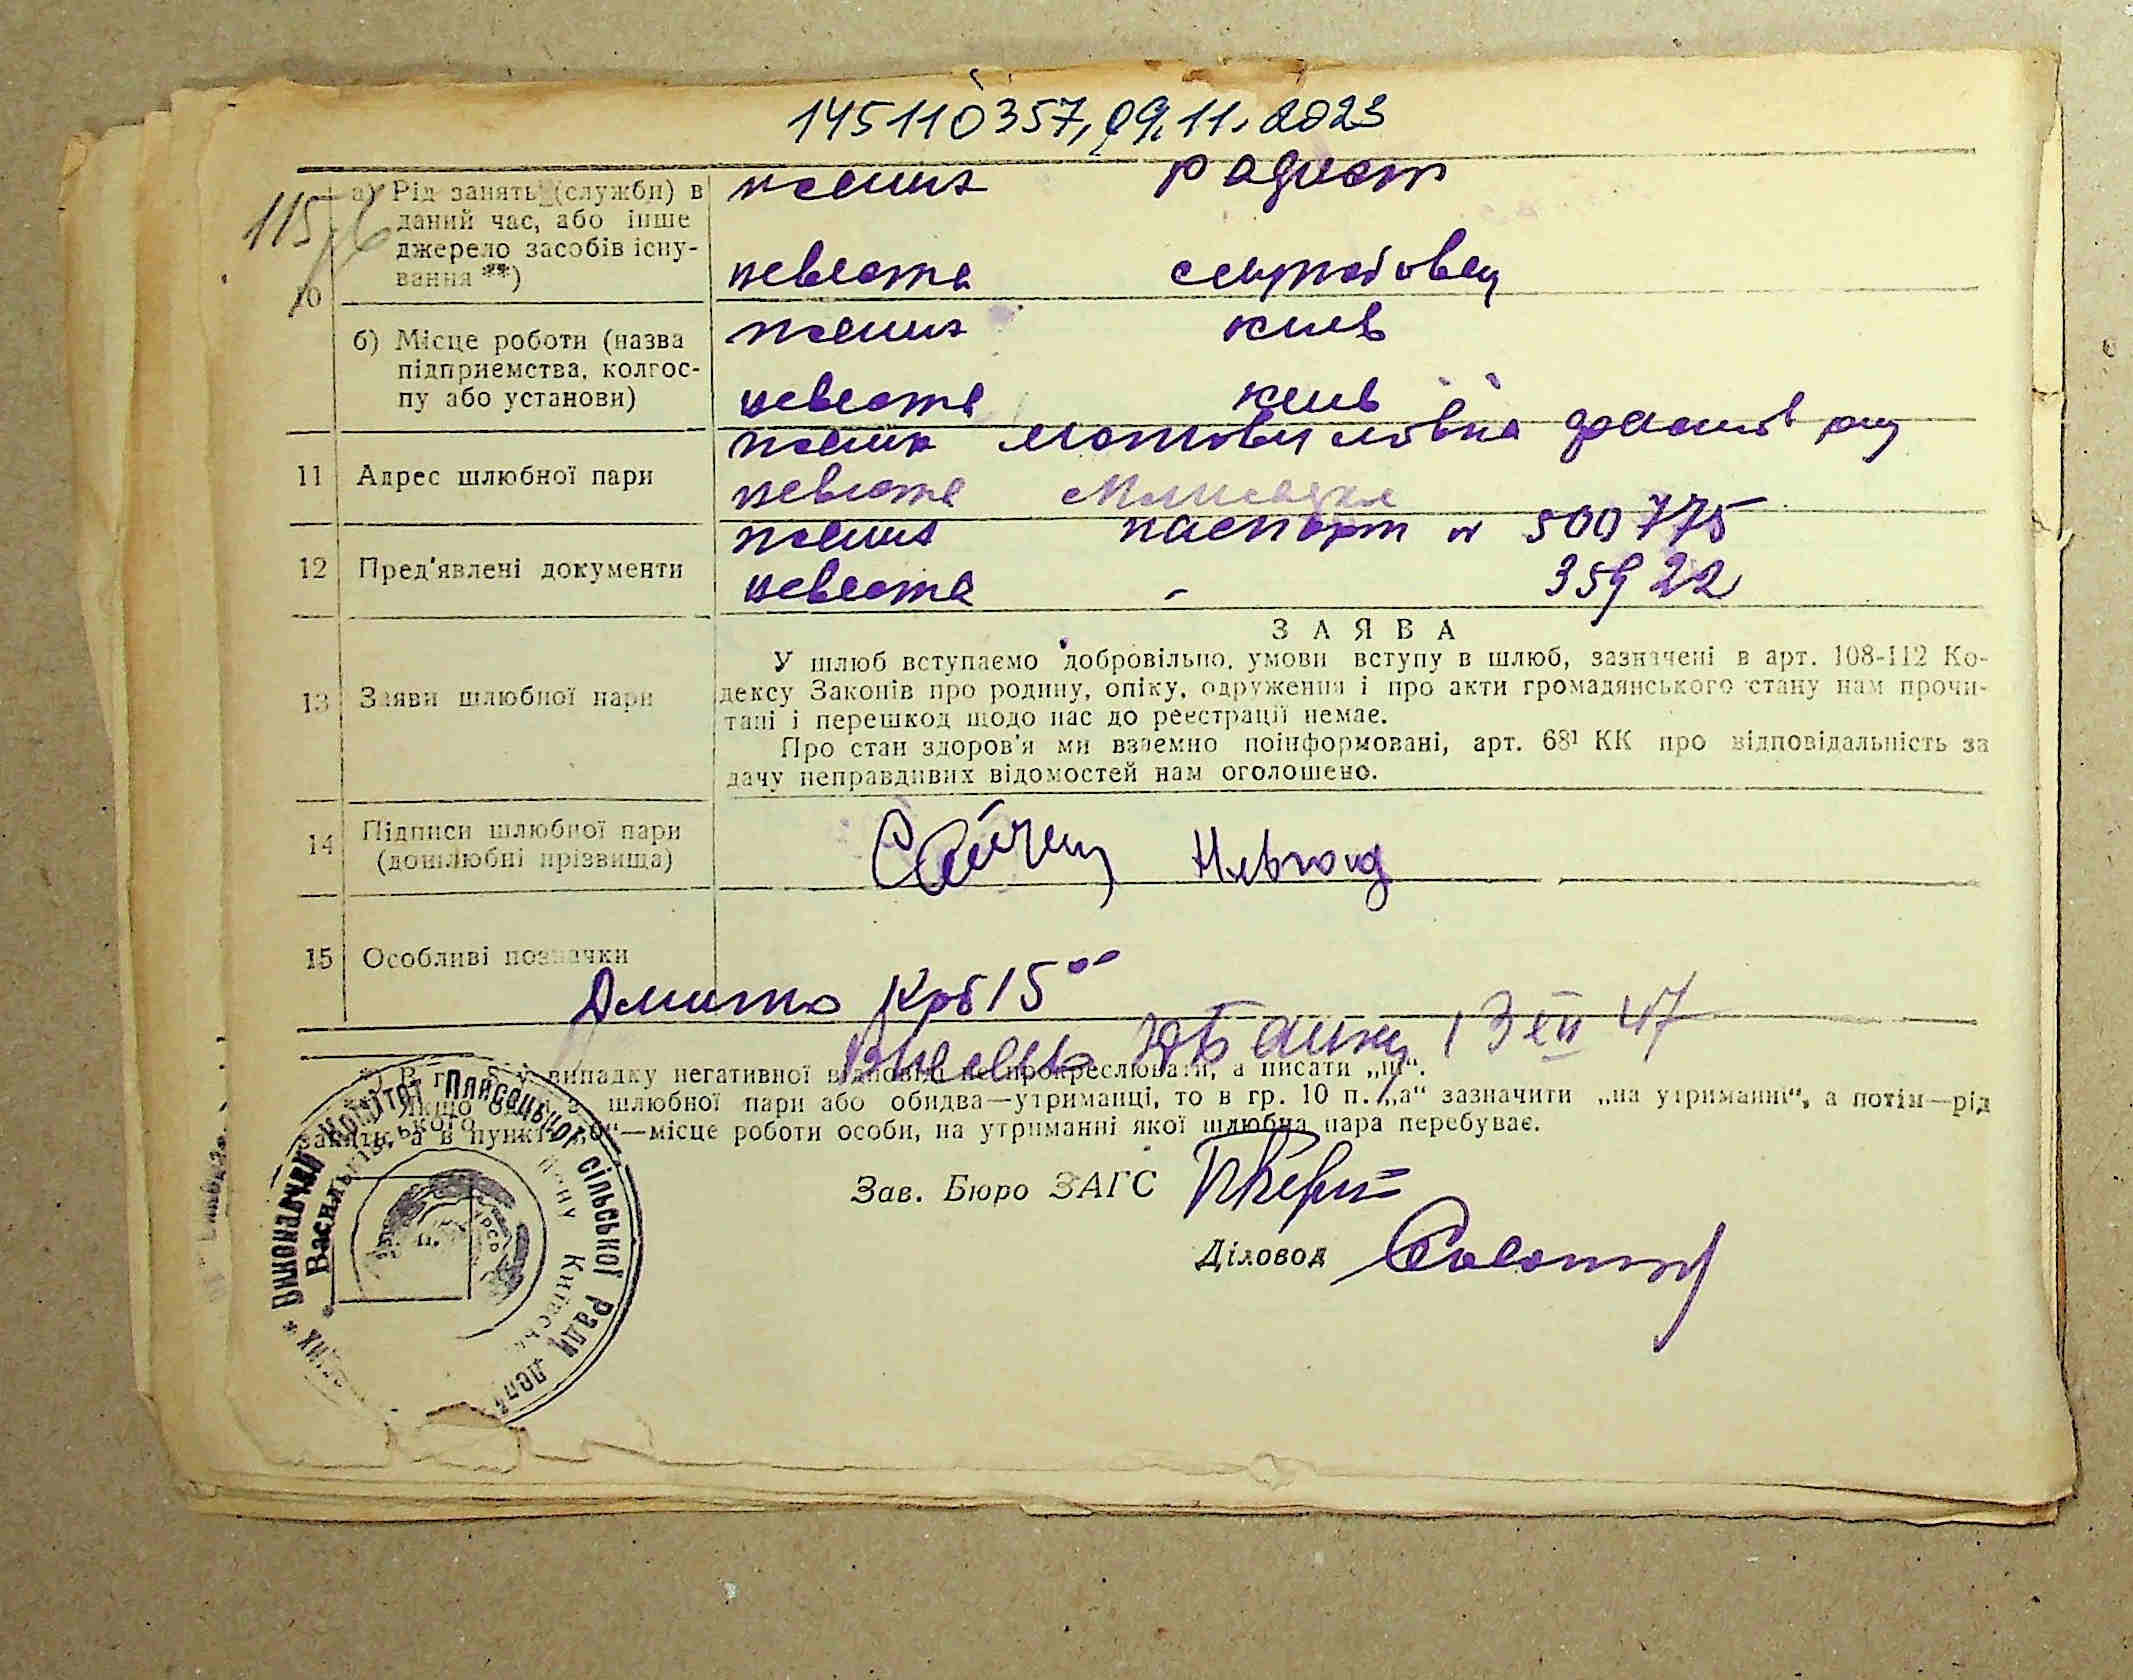 145110357, 09.11.2023
115
10
а) Рід занять (служби) в
даний час, або інше
джерело засобів існу-
вання **)
жених радист
невеста
б) Місце роботи (назва
підприємства, колгос-
пу або установи)
жених киев
невеста киев
11 Адрес шлюбної пари
жених Мотовиловка
невеста
12 Пред'явлені документи
жених паспорт № 500775
невеста - 35922
13 Заяви шлюбної пари
ЗАЯВА
У шлюб вступаємо добровільно, умови вступу в шлюб, зазначені в арт. 108-112 Ко-
дексу Законів про родину, опіку, одруження і про акти громадянського стану нам прочи-
тані і перешкод щодо нас до реєстрації немає.
Про стан здоров'я ми взаємно поінформовані, арт. 68¹ КК про відповідальність за
дачу неправдивих відомостей нам оголошено.
14 Підписи шлюбної пари
(дошлюбні прізвища)
15 Особливі позначки
15
13 XII 47
у випадку негативної відповіді не прокреслювати, а писати „ні“.
Якщо один з шлюбної пари або обидва—утриманці, то в гр. 10 п. „а“ зазначити „на утриманні“, а потім—рід
занять, а в пункті „б“—місце роботи особи, на утриманні якої шлюбна пара перебуває.
Зав. Бюро ЗАГС
Діловод
* Виконавчий Комітет Плисецької сільської ради деп
Васильківського Київськ
УРСР